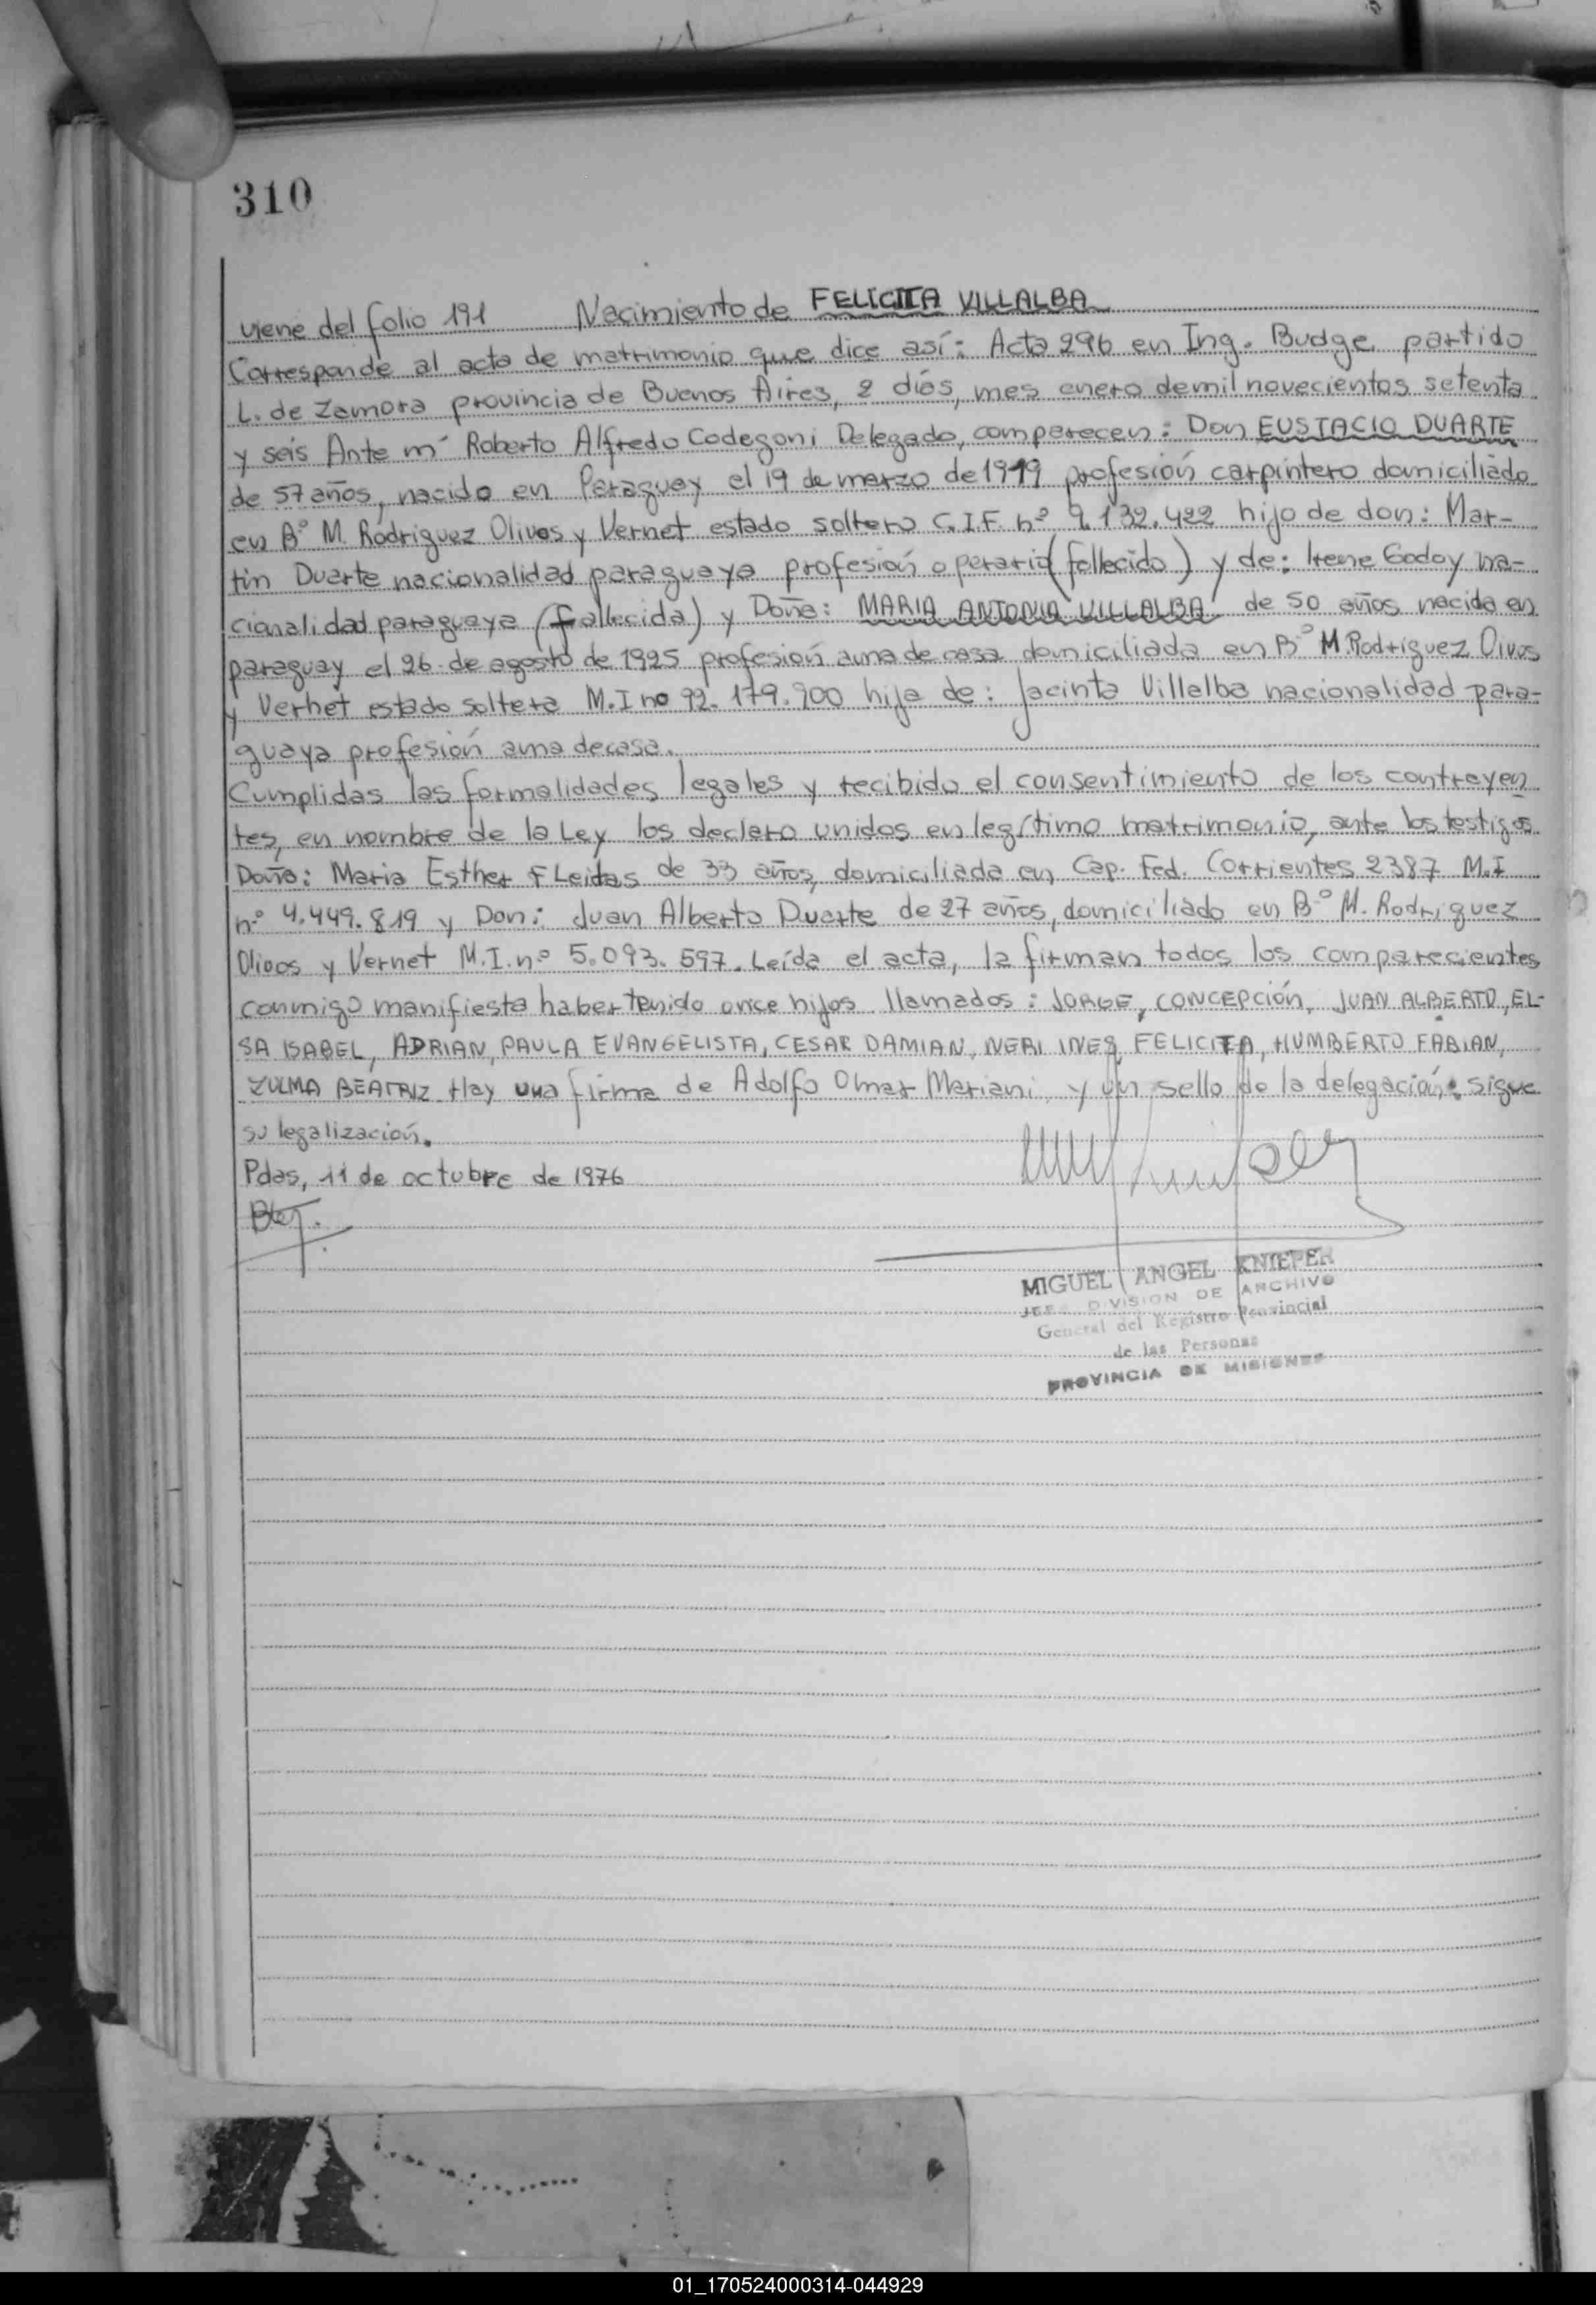 310
viene del folio 191 Nacimiento de FELICITA VILLALBA
Corresponde al acta de matrimonio que dice así: Acta 296 en Ing. Budge partido
L. de Zamora provincia de Buenos Aires, 2 días, mes enero de mil novecientos setenta
y seis Ante mí Roberto Alfredo Codegoni Delegado, comparecen: Don EUSTACIO DUARTE
de 57 años, nacido en Paraguay el 19 de marzo de 1919 profesión carpintero domiciliado
en Bº M. Rodriguez Olivos y Vernet estado soltero C.I.F. nº 9.132.422 hijo de don: Mar-
tin Duarte nacionalidad paraguaya profesión operario (fallecido) y de: Irene Godoy na-
cionalidad paraguaya (fallecida) y Doña: MARIA ANTONIA VILLALBA de 50 años nacida en
paraguay el 26 de agosto de 1925 profesión ama de casa domiciliada en Bº M. Rodriguez Olivos
y Vernet estado soltera M.I no 92.179.900 hija de: Jacinta Villalba nacionalidad para-
guaya profesión ama de casa.
Cumplidas las formalidades legales y recibido el consentimiento de los contrayen
tes, en nombre de la Ley los declaro unidos en legítimo matrimonio, ante los testigos
Doña: Maria Esther FLeitas de 33 años, domiciliada en Cap. Fed. Corrientes 2387 M.I
nº 4.449.819 y Don: Juan Alberto Duarte de 27 años, domiciliado en Bº M. Rodriguez
Olivos y Vernet M.I. nº 5.093.597. Leída el acta, la firman todos los comparecientes
conmigo manifiesta haber tenido once hijos llamados: JORGE, CONCEPCIÓN, JUAN ALBERTO, EL-
SA ISABEL, ADRIAN, PAULA EVANGELISTA, CESAR DAMIAN, NERI INES, FELICITA, HUMBERTO FABIAN,
ZULMA BEATRIZ. Hay una firma de Adolfo Omar Mariani y un sello de la delegación. sigue
su legalización.
Pdas, 11 de octubre de 1976
MIGUEL ANGEL KNIEPER
JEFE DIVISION DE ARCHIVO
General del Registro Provincial
de las Personas
PROVINCIA DE MISIONES
01_170524000314-044929